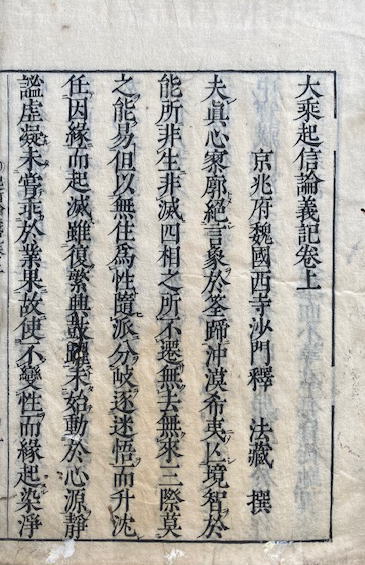 大乗起信論義記卷上
京兆府魏國西寺沙門釋 法藏 撰
夫眞心寥廓絶言象於筌蹄沖漠希夷亡境智於
能所非生非滅四相之所不遷無去無來三際莫
之能易但以無住為性隨派分岐逐迷悟而升沈
任因緣而起滅雖復繁興鼓躍未始動於心源靜
謐虚凝未嘗乖於業果故使不變性而緣起染淨